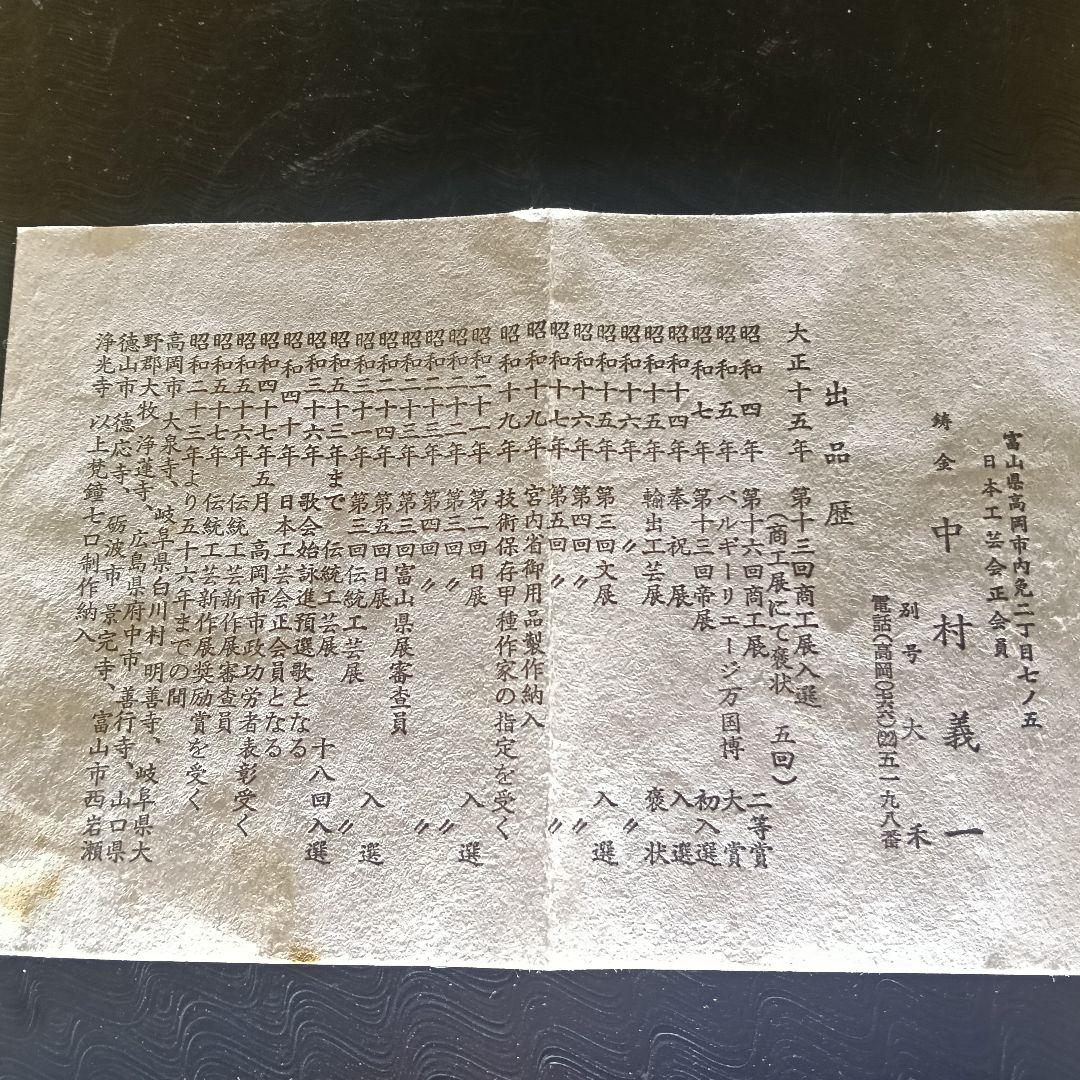 富山県高岡市内免二丁目七ノ五
日本工芸会正会員
鋳金 中村義一
別号 大禾
電話(高岡〇七六六)(22)五一九八番
出品歴
大正十五年 第十三回商工展入選
(商工展にて褒状 五回)
昭和四年 第十六回商工展 二等賞
昭和五年 ベルギーリエージ万国博 大賞
昭和七年 第十三回帝展 初入選
昭和十四年 奉祝展 入選
昭和十五年 輸出工芸展 褒状
昭和十六年 〃 〃
昭和十五年 第三回文展 入選
昭和十六年 第四回〃 〃
昭和十七年 第五回〃 〃
昭和十九年 宮内省御用品製作納入
昭和十九年 技術保存甲種作家の指定を受く
昭和二十一年 第二回日展 入選
昭和二十二年 第三回〃 〃
昭和二十三年 第四回〃 〃
昭和二十三年 第三回富山県展審査員
昭和二十四年 第五回日展 入選
昭和三十一年 第三回伝統工芸展 〃
昭和五十三年まで 伝統工芸展 十八回入選
昭和三十六年 歌会始詠進預選歌となる
昭和四十年 日本工芸会正会員となる
昭和四十七年五月 高岡市市政功労者表彰受く
昭和五十六年 伝統工芸新作展審査員
昭和五十七年 伝統工芸新作展奨励賞を受く
昭和二十三年より五十六年までの間
高岡市 大泉寺、岐阜県白川村 明善寺、岐阜県大
野郡大牧 浄蓮寺、広島県府中市 善行寺、山口県
徳山市 徳応寺、砺波市 景完寺、富山市西岩瀬
浄光寺 以上梵鐘七口制作納入